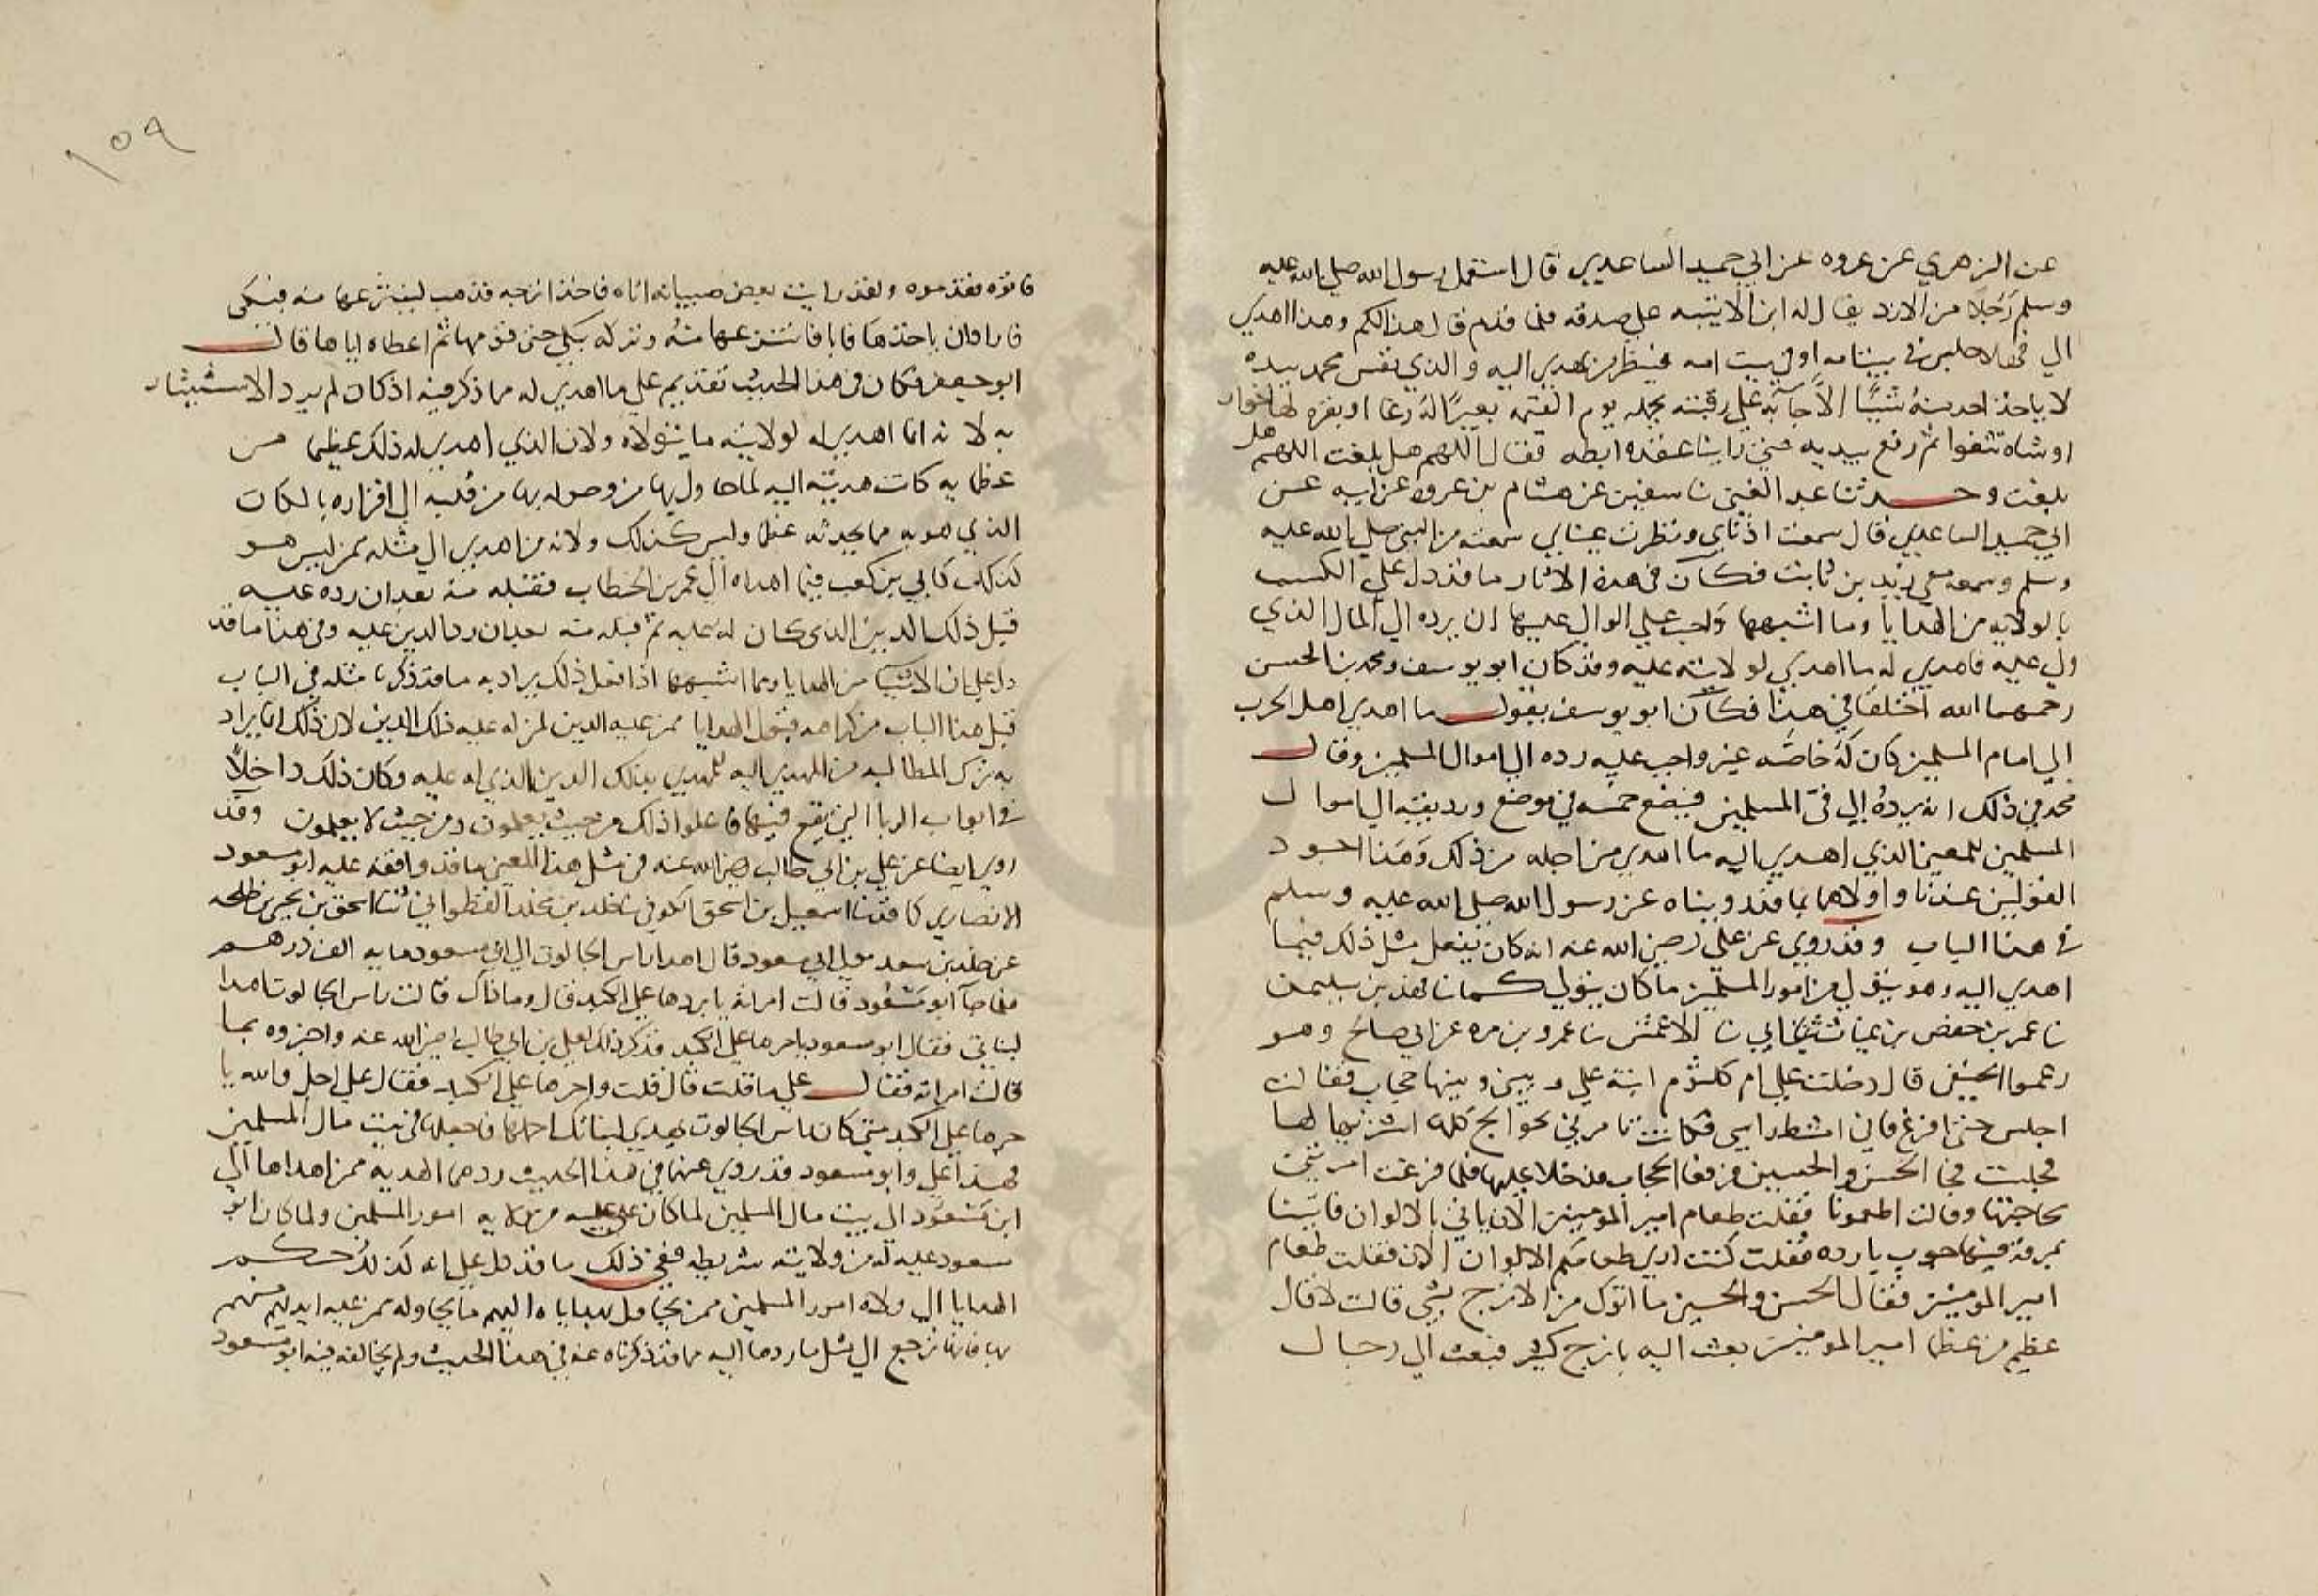 عن الزهري عن عروه عن ابي حميد الساعدي قال استعمل رسول الله صلي الله عليه
وسلم رجلا من الازد يقال له ابن الاتبيه علي صدقه فلما قدم قال هذا لكم وهذا اهدي
الي فهلا جلس في بيت ابيه او في بيت امه فينظر من يهدي اليه والذي نفس محمد بيده
لا ياخذ احد منه شيئا الا جا به علي رقبته يحمله يوم القيمه بعيرا له رغا او بقره لها خوار
او شاه تثغوا ثم رفع يديه حتي راينا عفره ابطه فقال اللهم هل بلغت اللهم هل
بلغت وحدثنا عبد الغني نا سفين عن هشام بن عروه عن ابيه عن
ابي حميد الساعدي قال سمعت اذناي ونظرت عيناي سمعته من النبي صلي الله عليه
وسلم وسمعه معي زيد بن ثابت فكان في هذه الاثار ما قد دل علي الكسب
بالولايه من الهدايا وما اشبهها واجب علي الوالي عليها ان يرده الي المال الذي
ولي عليه فاهدي له ما اهدي لولايته عليه وقد كان ابو يوسف ومحمد بن الحسن
رحمهما الله اختلفا في هذا فكان ابو يوسف يقول ما اهدي اهل الحرب
الي امام المسلمين كان له خاصه غير واجب عليه رده الي اموال المسلمين وقال
محمد في ذلك انه يرده الي في المسلمين فيضع خمسه في موضع ويرد بقيته الي اموال
المسلمين للمعني الذي اهدي اليه ما اهدي من اجله من ذلك وهذا اجود
القولين عندنا واولاهما بما قد روينا عن رسول الله صلي الله عليه وسلم
في هذا الباب وقد روي عن علي رضي الله عنه انه كان يفعل مثل ذلك فيما
اهدي اليه وهو يتولي من امور المسلمين ما كان يتولي كما نا فهد بن سليمن
نا عمر بن حفص بن غياث ثنا ابي نا الاعمش نا عمرو بن مره عن ابي صالح وهو
الحنفي قال دخلت علي ام كلثوم ابنة علي وبيني وبينها حجاب فقالت
اجلس حتي افرغ فاني امشط راسي فكانت تامرني بحوايج كله اشتريها لها
فجلست فجا الحسن والحسين فرفعا الحجاب فدخلا عليها فلما فرغت امرتني
بحاجتها وقالت اطعمونا فقلت طعام امير المومنين الان ياتي بالالوان فاتينا
بمرقه فيها حبوب بارده فقلت كنت اري طعامكم الالوان الان فقلت طعام
امير المومنين فقال الحسن والحسين ما اتوك من الاترج بشي قالت لا قال
عظيم من عظما امير المومنين بعث اليه باترج كثير فبعث الي رجال
١٥٩
فاتوه فقوموه ولقد رايت بعض صبيانه اتاه فاخذ اترجه فذهب لينتزعها منه فبكي
فارادان ياخذها فابا فانتزعها منه وتركه يبكي حتي قومها ثم اعطاه اياها قال
ابو جعفر فكان في هذا الحديث تقويم علي ما اهدي له مما ذكر فيه اذ كان لم يرد الاستيثار
به لانه انما اهدي له لولايته ما يتولاه ولان الذي اهدي له ذلك عظيما من
عظمايه كانت هديته اليه
الذي هو به مما يجد ثه عظما وليس كذلك ولانه من اهدي الي مثله ممن ليس هو
كذلك كابي بن كعب فيما اهداه الي عمر بن الخطاب فقبله منه بعد ان رده عليه
قبل ذلك الدين الذي كان له عليه ثم قبله منه بعد ان رد الدين عليه وفي هذا ما قد
دل علي ان الاشيا من الهدايا ومما اشبهها اذا فعل ذلك يراد به ما قد ذكرنا مثله في الباب
قبل هذا الباب من كراهه قبول الهدايا ممن عليه الدين لمن له عليه ذلك الدين لان ذلك انما يراد
به ترك المطالبه من المهدي اليه للمهدي بذلك الدين الذي له عليه وكان ذلك داخلا
في ابواب الربا التي يقع فيها فاعلوا ذلك من حيث يعلمون ومن حيث لا يعلمون وقد
روي ايضا عن علي بن ابي طالب رضي الله عنه في مثل هذا المعني ما قد وافقه عليه ابو مسعود
الانصاري كما قد نا اسمعيل بن اسحق الكوفي نا خلد بن مخلد القطواني نا اسحق بن يحيي بن طلحه
عن خلد بن سعد مولي ابي مسعود قال اهدا راس الجالوت الي ابي مسعود مايه الف درهم
فلما جا ابو مسعود قالت امراته يا بردها علي الكبد قال وما ذاك قالت راس الجالوت اهدا
لبناتي فقال ابو مسعود يا حرها علي الكبد فذكر ذلك لعلي بن ابي طالب رضي الله عنه واخبره بما
قالت امراته فقال علي ما قلت قال قلت واحرها علي الكبد فقال علي اجل والله يا
حرها علي الكبد متي كان راس الجالوت يهدي لبناتك احملها فاجعلها في بيت مال المسلمين
فهذا علي وابو مسعود قد روي عنهما في هذا الحديث ردهما الهديه ممن اهداها الي
ابن مسعود الي بيت مال المسلمين لما كان امور المسلمين ولما كان ابو
مسعود عليه له من ولايته شريطه ففي ذلك ما قد دل علي انه كذلك حكم
الهدايا الي ولاه امور المسلمين ممن يحاول بهداياه اليهم ما يحاوله ممن عليه ايديهم منهم
بها فانها ترجع الي مثل ما ردها اليه مما قد ذكرناه عنه في هذا الحديث ولم يخالفه فيه ابو مسعود